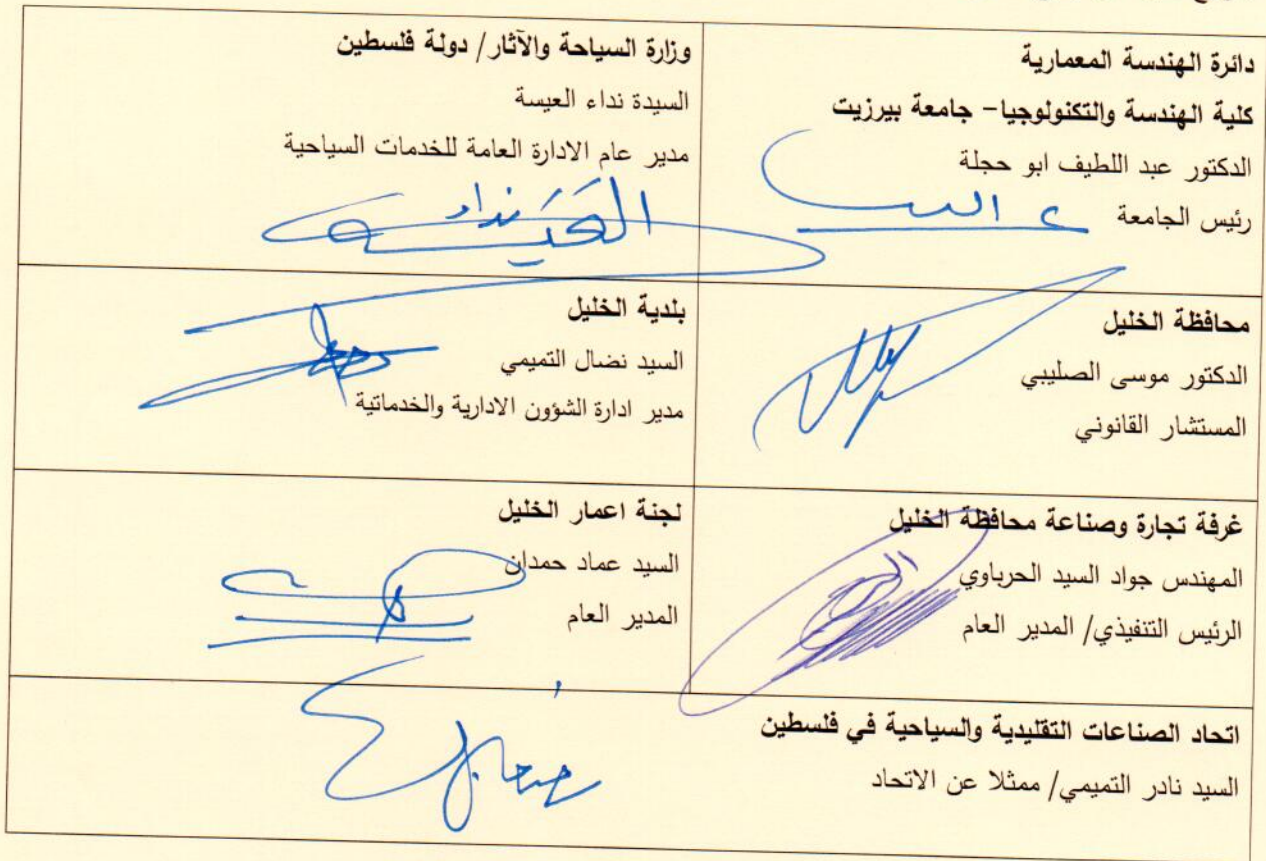 دائرة الهندسة المعمارية
كلية الهندسة والتكنولوجيا– جامعة بيرزيت
الدكتور عبد اللطيف ابو حجلة
رئيس الجامعة
وزارة السياحة والآثار/ دولة فلسطين
السيدة نداء العيسة
مدير عام الادارة العامة للخدمات السياحية
نداء العيسة
محافظة الخليل
الدكتور موسى الصليبي
المستشار القانوني
بلدية الخليل
السيد نضال التميمي
مدير ادارة الشؤون الادارية والخدماتية
غرفة تجارة وصناعة محافظة الخليل
المهندس جواد السيد الحرباوي
الرئيس التنفيذي/ المدير العام
لجنة اعمار الخليل
السيد عماد حمدان
المدير العام
اتحاد الصناعات التقليدية والسياحية في فلسطين
السيد نادر التميمي/ ممثلا عن الاتحاد